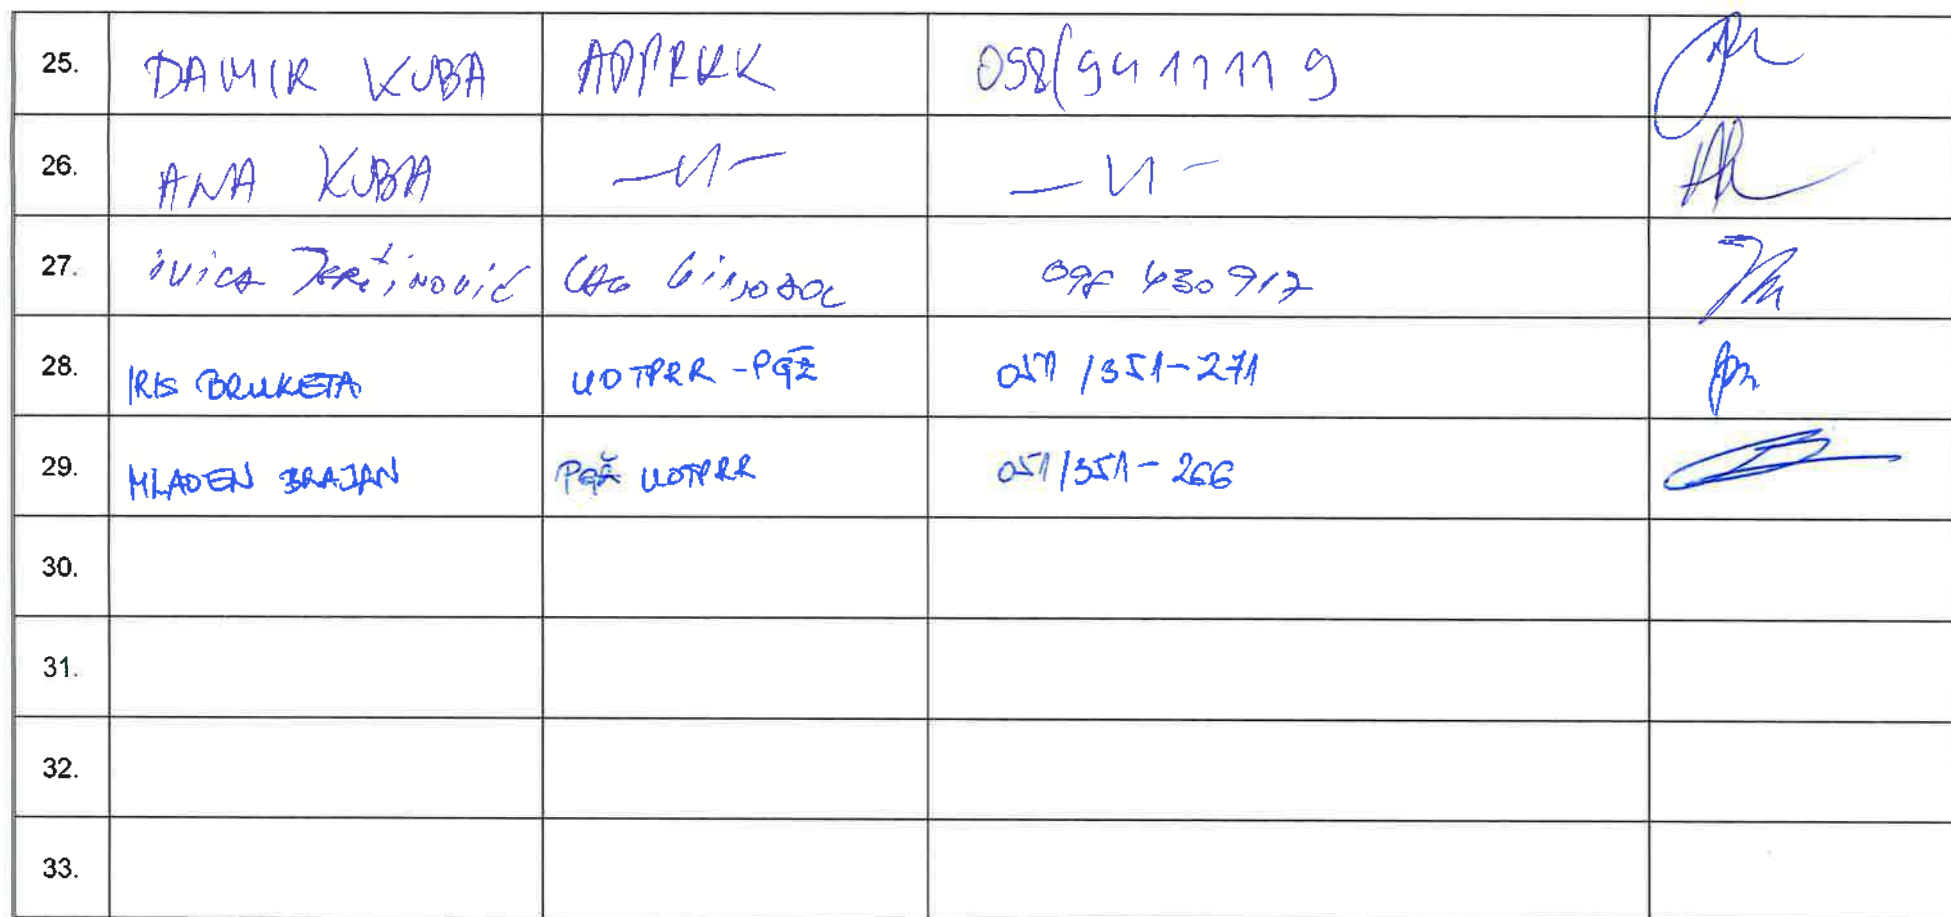 25. DAMIR KUBA APPRRK 098/9411119
26. ANA KUBA —II— —II—
27. IVICA LAG 098 430 917
28. IRIS BRUKETA UOTPRR - PGŽ 051 /351-271
29. MLADEN BRAJAN PGŽ UOTPRR 051/351-266
30.
31.
32.
33.